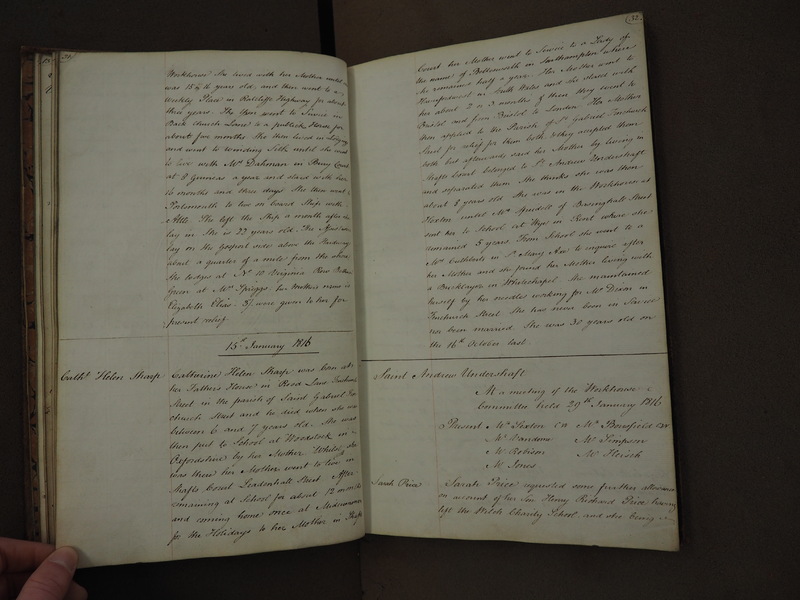 Workhouse She lived with her Mother until she
was 15 or 16 years old, and then went to a
Weekly Place in Ratcliffe Highway for about
three years. She then went to Service in
Back Church Lane to a publick House for
about five months. She then lived in Lodging
and went to winding Silk until she went
to live with Mrs Dahman in Bury Court
at 8 Guineas a year and staid with her
16 months and three days. She then went to
Portsmouth to live on board Ship with
She left the Ship a month after
lay in She is 22 years old. The
lay on the Gosport side above the
about a quarter of a mile from the shore
She lodges at No 10 Virginia Row Bethnal
Green at Mrs Spriggs her Mothers name is
Elizabeth Elias 3/ were given to her for
present relief.
15th January 1816
Cathe Helen Sharp
Catherine Helen Sharp was born at
her Fathers House in Rood Lane Fenchurch
Street in the parish of Saint Gabriel Fen
church Street and he died when she was
between 6 and 7 years old. She was
then put to School at Woodstock in
Oxfordshire by her Mother Whilst she
was there her Mother went to live in
Shafts Court Leadenhall Street After
remaining at School for about 12 months
and coming home once at Midsummer
for the Holidays to her Mother in Shafts
32
Court her Mother went to Service to a Lady of
the name of Bettesworth in Southampton where
she remained half a year. Her Mother went to
Haverfordwest in South Wales and she staied with
her about 2 or 3 months & then they went to
Bristol and from Bristol to London Her Mother
then applied to the Parish of St Gabriel Fenchurch
Street for relief for them both & they accepted them
both but afterwards said her Mother by living in
Shafts Court belonged to St Andrew Undershaft
and separated them She thinks she was then
about 8 years old She was in the Workhouse at
Hoxton until Mrs Rundell of Basinghall Street
sent her to School at Wye in Kent where she
remained 5 years. From School she went to a
Mrs Cuthberts in St Mary Axe to enquire after
her Mother and she found her Mother living with
a Bricklayer in Whitechapel She maintained
herself by her needle working for Mr Dixon in
Fenchurch Street She has never been in Service
nor been married She was 30 years old on
the 16th October last.
Saint Andrew Undershaft
At a meeting of the Workhouse
Committee held 29th January 1816
Present Mr Sexton CW Mr Bousfield CW
Mr Vandome Mr Simpson
Mr Robison Mr
Mr Jones
Sarah Price
Sarah Price requested some further allowance
on account of her Son Henry Richard Price having
left the Welch Charity School and she being